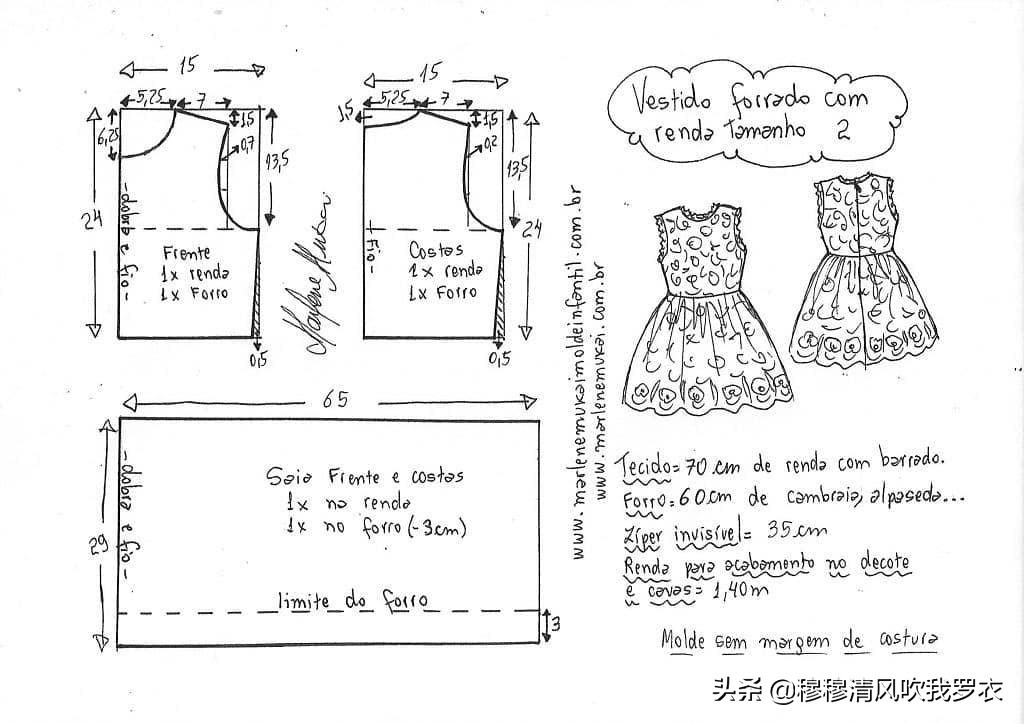 Vestido forrado com
renda tamanho 2
15
5,25
7
6,25
1,5
0,7
13,5
24
- dobra e fio -
Frente
1x renda
1x Forro
0,5
15
1,5
5,25
7
1,5
0,2
13,5
24
fio -
Costas
1x renda
1x Forro
0,5
65
29
- dobra e fio -
Saia Frente e costas
1x na renda
1x no forro (-3cm)
limite do forro
3
www.marlenemukaimoldeinfantil.com.br
www.marlenemukai.com.br
Tecido= 70 cm de renda com barrado.
Forro= 60cm de cambraia, alpaseda...
Zíper invisível= 35cm
Renda para acabamento no decote
e cavas= 1,40m
Molde sem margem de costura
头条 @穆穆清风吹我罗衣